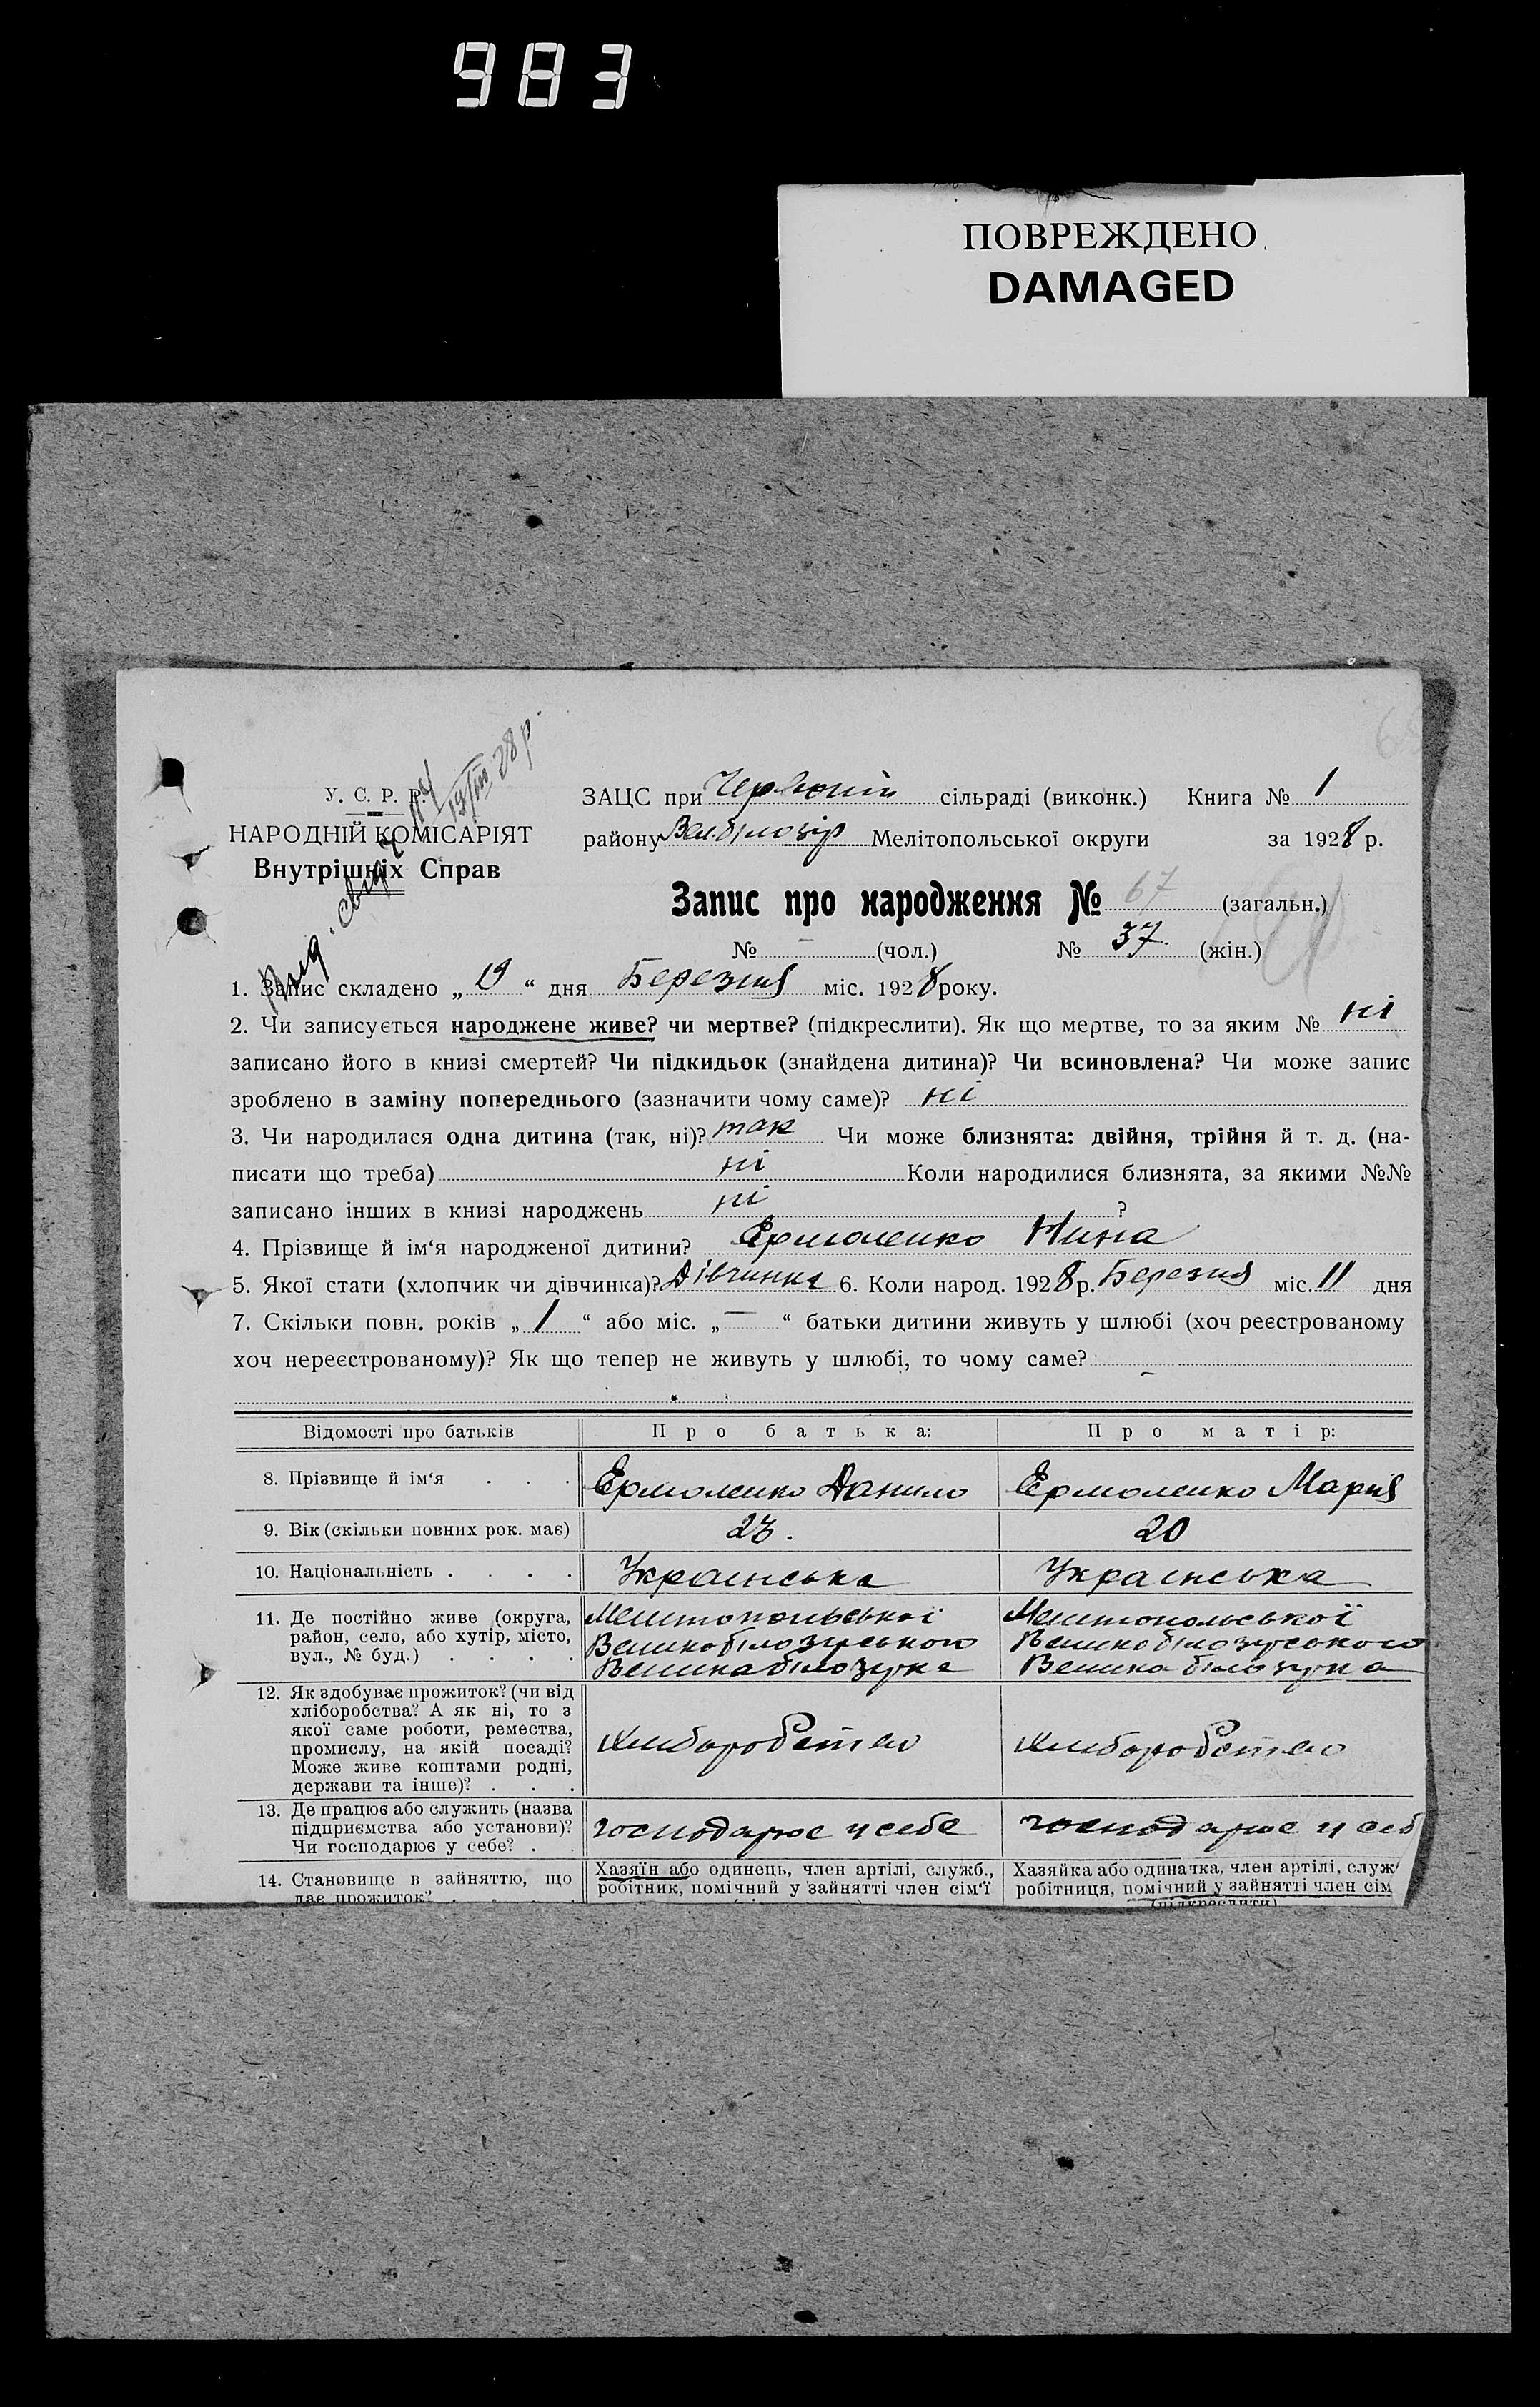 983
ПОВРЕЖДЕНО
DAMAGED
У. С. Р. Р.
НАРОДНІЙ КОМІСАРІЯТ
Внутрішніх Справ
19/III 28 р.
ЗАЦС при Червоній сільраді (виконк.) Книга № 1
району Вел.білозір Мелітопольської округи за 1928 р.
Запис про народження № 67 (загальн.)
№ — (чол.) № 37 (жін.)
1. Запис складено „ 19 “ дня Березня міс. 1928 року.
2. Чи записується народжене живе? чи мертве? (підкреслити). Як що мертве, то за яким № ні
записано його в книзі смертей? Чи підкидьок (знайдена дитина)? Чи всиновлена? Чи може запис
зроблено в заміну попереднього (зазначити чому саме)? ні
3. Чи народилася одна дитина (так, ні)? так Чи може близнята: двійня, трійня й т. д. (на-
писати що треба) ні Коли народилися близнята, за якими №№
записано інших в книзі народжень ні ?
4. Прізвище й ім‘я народженої дитини? Ермоленко Нина
5. Якої стати (хлопчик чи дівчинка)? Дівчинка 6. Коли народ. 1928 р. Березня міс. 11 дня
7. Скільки повн. років „ 1 “ або міс. „ — “ батьки дитини живуть у шлюбі (хоч реєстрованому
хоч нереєстрованому)? Як що тепер не живуть у шлюбі, то чому саме? –
Відомості про батьків Про батька: Про матір:
8. Прізвище й ім‘я . . . Ермоленко Данило Ермоленко Мария
9. Вік (скільки повних рок. має) 23. 20
10. Національність . . . . Украінська Украінська
11. Де постійно живе (округа, Мелітопольської Мелітопольської
район, село, або хутір, місто, Великобілозірського Великобілозірського
вул., № буд.) . . . . Великабілозірка Велика білозірка
12. Як здобуває прожиток? (чи від
хліборобства? А як ні, то з
якої саме роботи, ремества,
промислу, на якій посаді? Хліборобство Хліборобство
Може живе коштами родні,
держави та інше)? . . .
13. Де працює або служить (назва
підприємства або установи)? господарює у себе господарює у себ
Чи господарює у себе? . .
14. Становище в зайняттю, що Хазяїн або одинець, член артілі, служб., Хазяйка або одиначка, член артілі, служ
дає прожиток? . . . . робітник, помічний у зайнятті член сім‘ї робітниця, помічний у зайнятті член сім
(підкреслити)